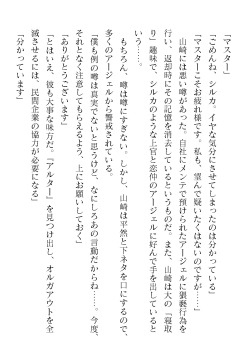 「マスター」
「ごめんね、シルカ。イヤな気分にさせてしまったのは分かっている」
「マスターこそお疲れ様です。私も、望んで疑いたくはないのですが……」
　山崎には悪い噂があった。自社にメンテで預けられたアージェルに猥褻行為を
行い、返却時にその記憶を消去しているというものだ。また、山崎は大の『寝取
り』趣味で、シルカのような上官と恋仲のアージェルに好んで手を出していると
いう……。
　もちろん、噂は噂にすぎない。しかし、山崎は平然と下ネタを口にするので、
多くのアージェルから警戒されている。
「僕も例の噂は真実でないと思うけど、なにしろあの言動だからね……。今度、
それとなく注意してもらえるよう、上にお願いしておく」
「ありがとうございます」
「とはいえ、彼も大事な味方だ。『アルター』を見つけ出し、オルガアウトを全
滅させるには、民間企業の協力が必要になる」
「分かっています」